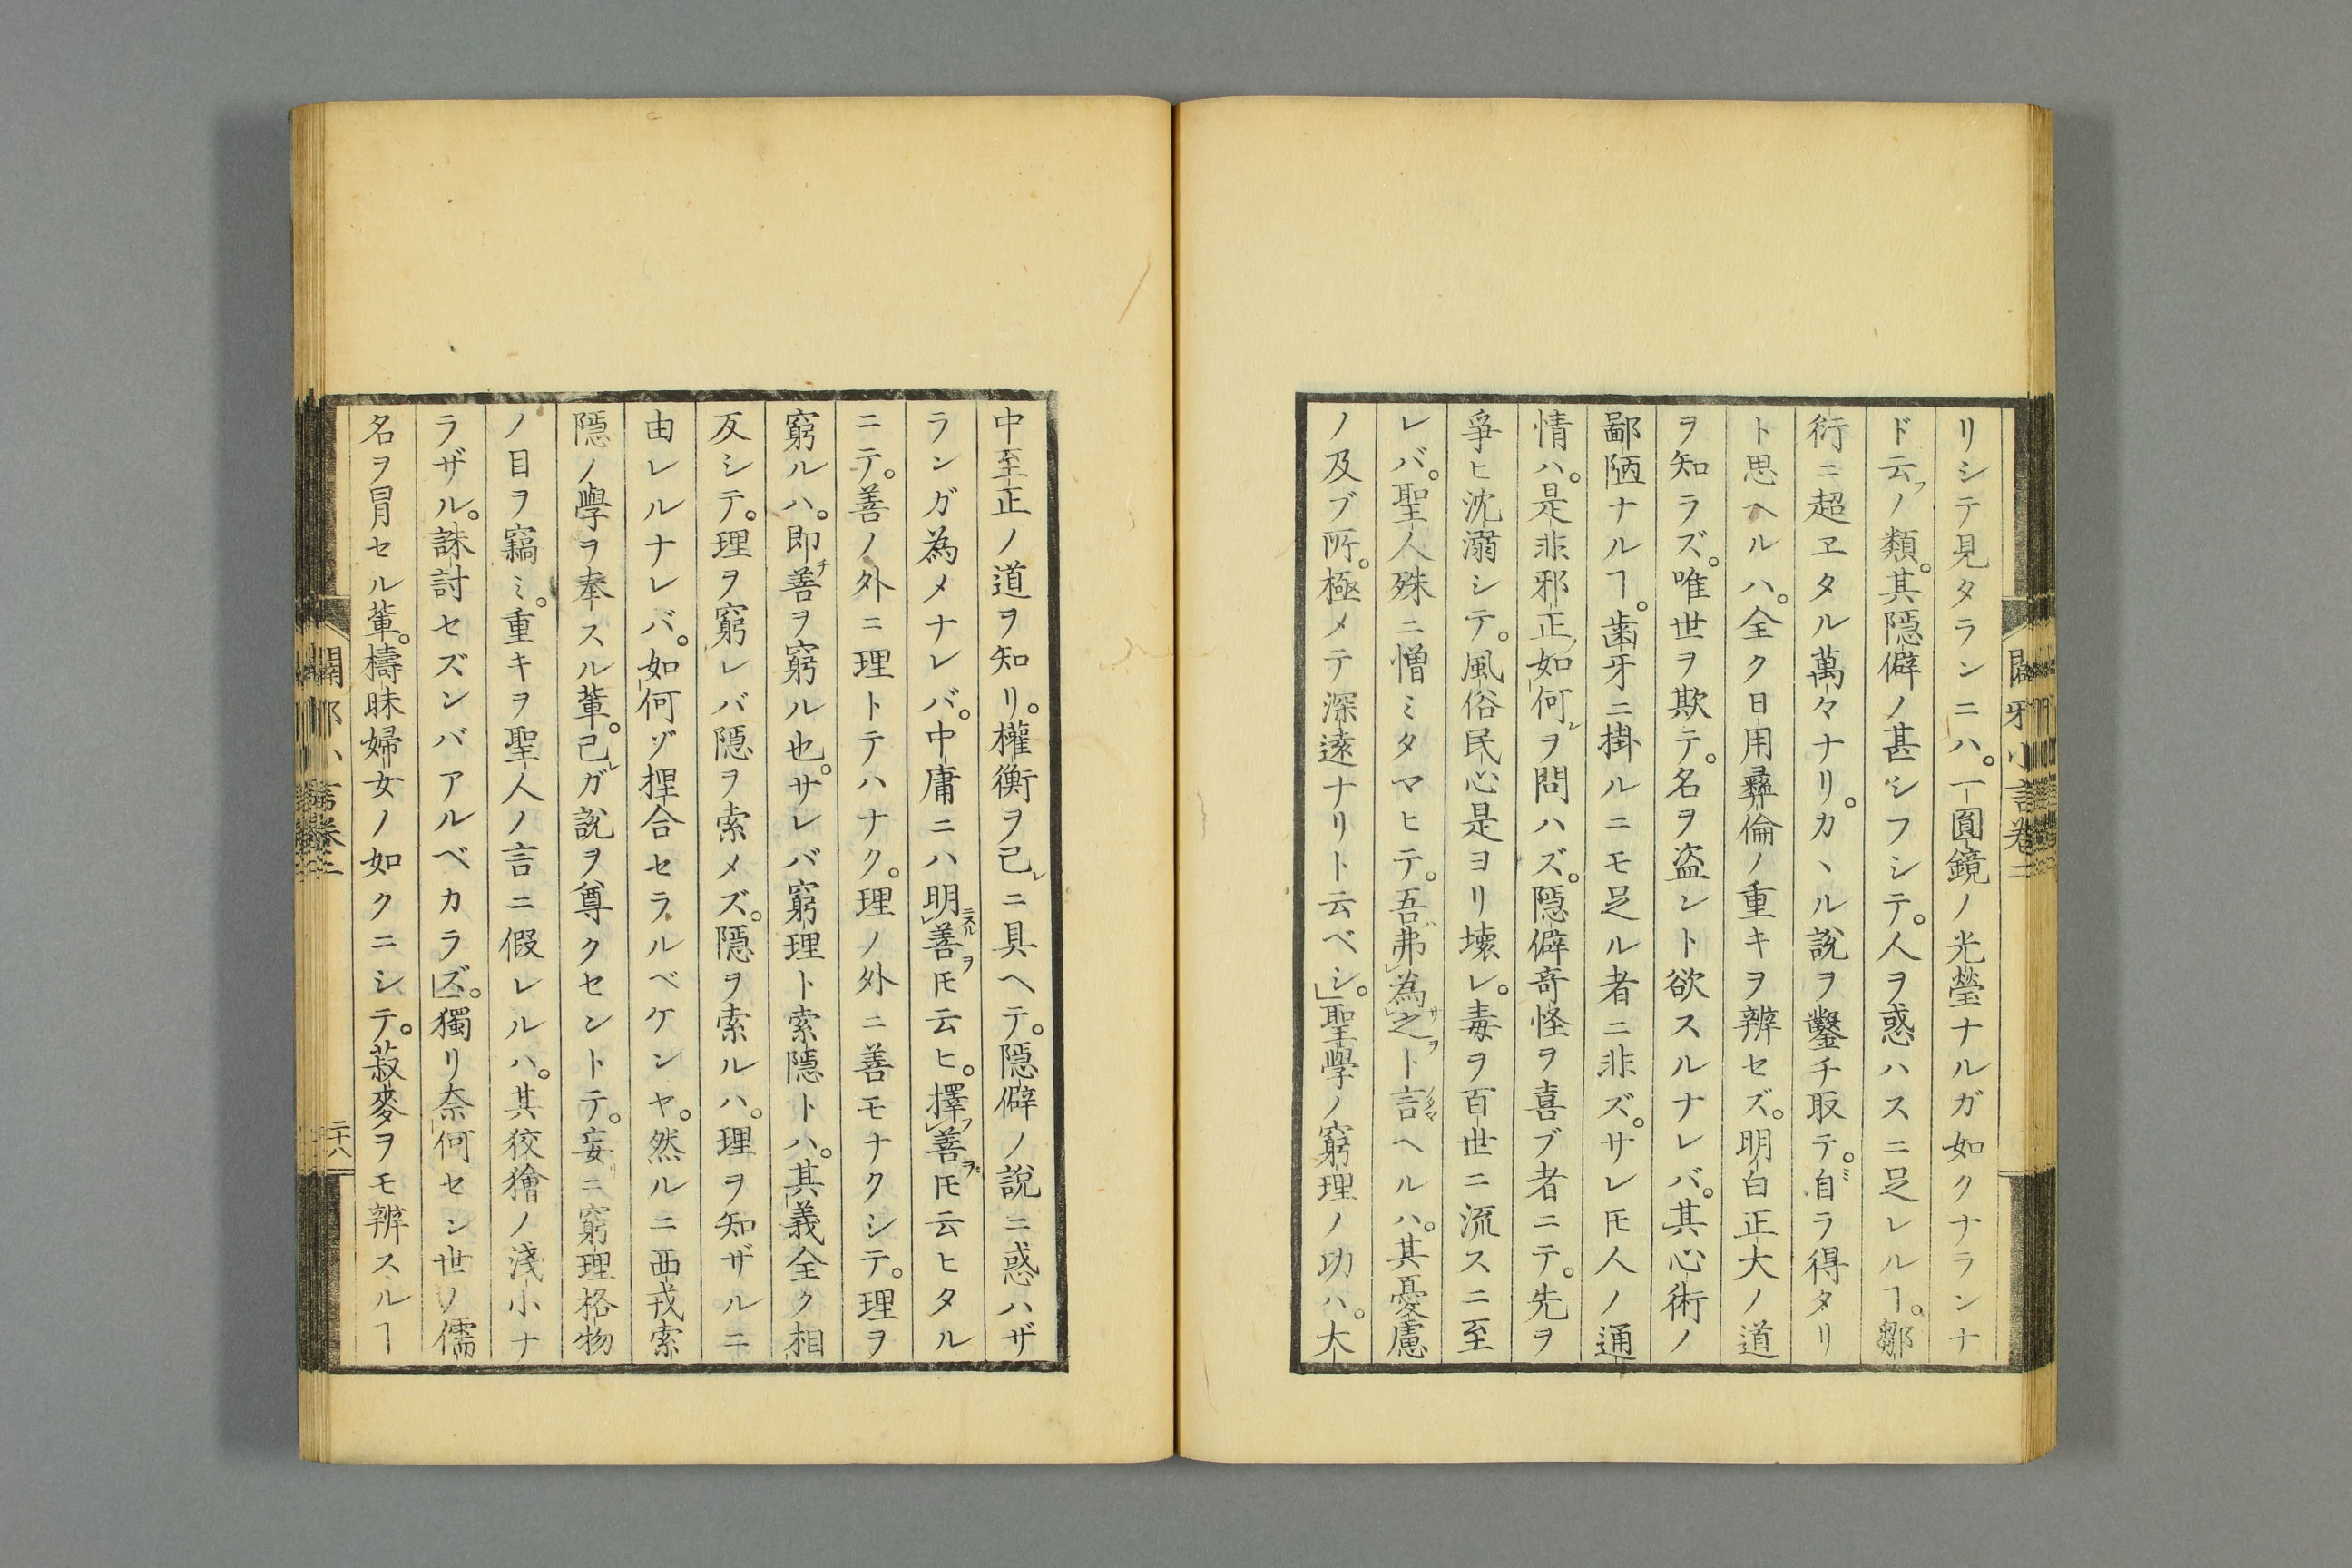 リシテ見タランニハ。一圓鏡ノ光瑩ナルガ如クナランナ
ド云フノ類。其隱僻ノ甚シフシテ。人ヲ惑ハスニ足レルヿ。鄒
衍ニ超ヱタル萬々ナリ。カヽル說ヲ鑿チ取テ。自ミラ得タリ
ト思ヘルハ。全ク日用彝倫ノ重キヲ辨セズ。明白正大ノ道
ヲ知ラズ。唯世ヲ欺テ。名ヲ盜ント欲スルナレバ。其心術ノ
鄙陋ナルヿ。齒牙ニ掛ルニモ足ル者ニ非ズ。サレ𪜈人ノ通
情ハ。是非邪正ノ如何レヲ問ハズ。隱僻奇怪ヲ喜ブ者ニテ。先ヲ
爭ヒ沈溺シテ。風俗民心是ヨリ壞レ。毒ヲ百世ニ流スニ至
レバ。聖人殊ニ憎ミタマヒテ。吾ハ弗為サ之ヲト言ノタマヘルハ。其憂慮
ノ及ブ所。極メテ深遠ナリト云ベシ。聖學ノ窮理ノ功ハ。大
中至正ノ道ヲ知リ。權衡ヲ己レニ具ヘテ。隱僻ノ說ニ惑ハザ
ランガ為メナレバ。中庸ニハ明ニスル善ヲ𪜈云ヒ。擇フ善ヲ𪜈云ヒタル
ニテ。善ノ外ニ理トテハナク。理ノ外ニ善モナクシテ。理ヲ
窮ルハ。即チ善ヲ窮ル也。サレバ窮理ト索隱トハ。其義全ク相
反シテ。理ヲ窮レバ隱ヲ索メズ。隱ヲ索ルハ。理ヲ知ザルニ
由レルナレバ。如何ゾ捏合セラルベケンヤ。然ルニ西戎索
隱ノ學ヲ奉スル輩。己レガ說ヲ尊クセントテ。妄リニ窮理格物
ノ目ヲ竊ミ。重キヲ聖人ノ言ニ假レルハ。其狡獪ノ淺小ナ
ラザル。誅討セズンバアルベカラズ。獨リ奈何セン世ノ儒
名ヲ冒セル輩。檮昧婦女ノ如クニシテ。菽麥ヲモ辨スルヿ
二十八